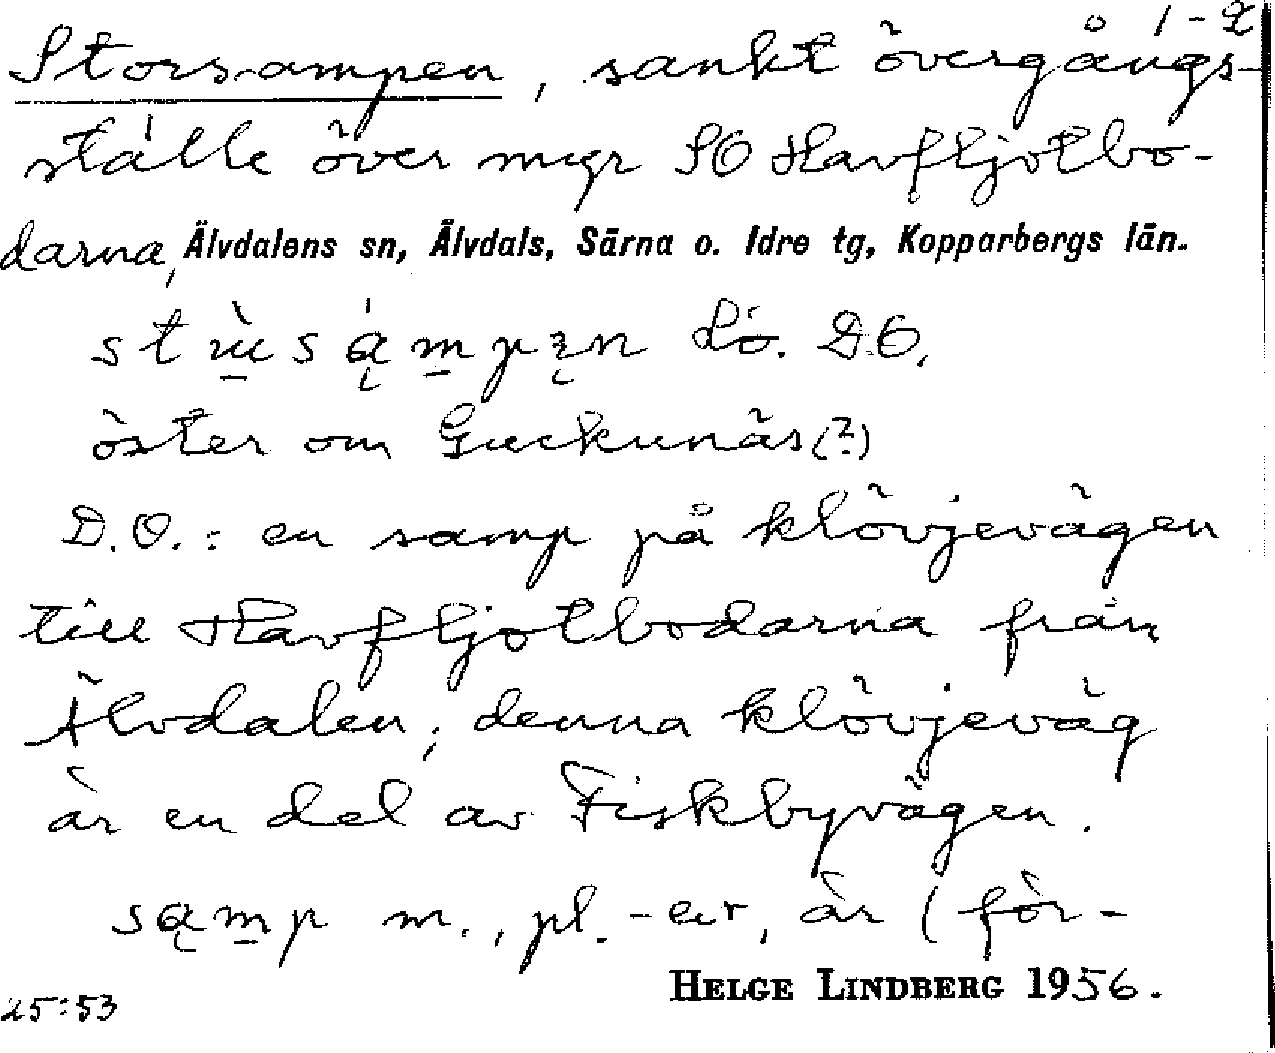 1-2
Storsampen, sankt övergångs-
ställe över myr SO Havfljotbo-
darna, Älvdalens sn, Älvdals, Särna o. Idre tg, Kopparbergs län.
Lö. D.O.
öster om Guckunäs(?)
D.O.: en samp på klövjevägen
till Havfljotbodarna från
Älvdalen; denna klövjeväg
är en del av Fiskbyvägen.
samp m., pl. -er, är (för-
HELGE LINDBERG 1956.
25:53